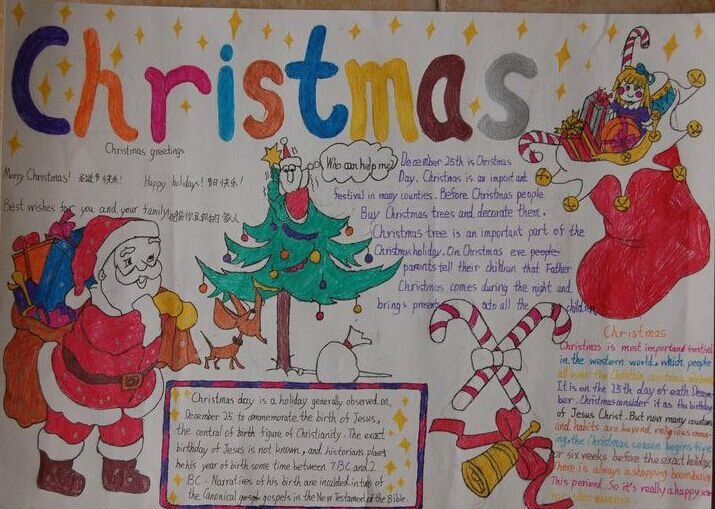 Christmas
Christmas greetings
Merry Christmas! 圣诞节快乐! Happy holidays! 节日快乐!
Best wishes for you and your family
Who can help me?
December 25th is Christmas
Day. Christmas is an important
festival in many counties. Before Christmas people
Buy Christmas trees and decorate them.
Christmas tree is an important part of the
Christmas holiday. On Christmas eve people
parents tell their children that Father
Christmas comes during the night and
brings presents to all the children
Christmas day is a holiday generally observed on
December 25 to commemorate the birth of Jesus,
the central of birth figure of Christianity. The exact
birthday of Jesus is not known, and historians place
his year of birth some time between 7BC and 2
BC. Narratives of his birth are included in two of
the Canonical gospels in the New Testament of the Bible.
Christmas
Christmas is most important festival
in the western world. which people
all over the Christian countries
It is on the 25th day of each Decem-
ber. Christmas consider it as the birthday
of Jesus Christ. But now many countries
and habits are beyond religious mean-
ing, the Christmas season begins five
or six weeks before the exact holiday.
There is always a shopping boom during
This period. So it's really a happy